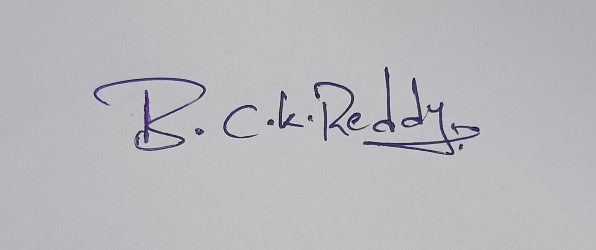 B. C.K.Reddy.